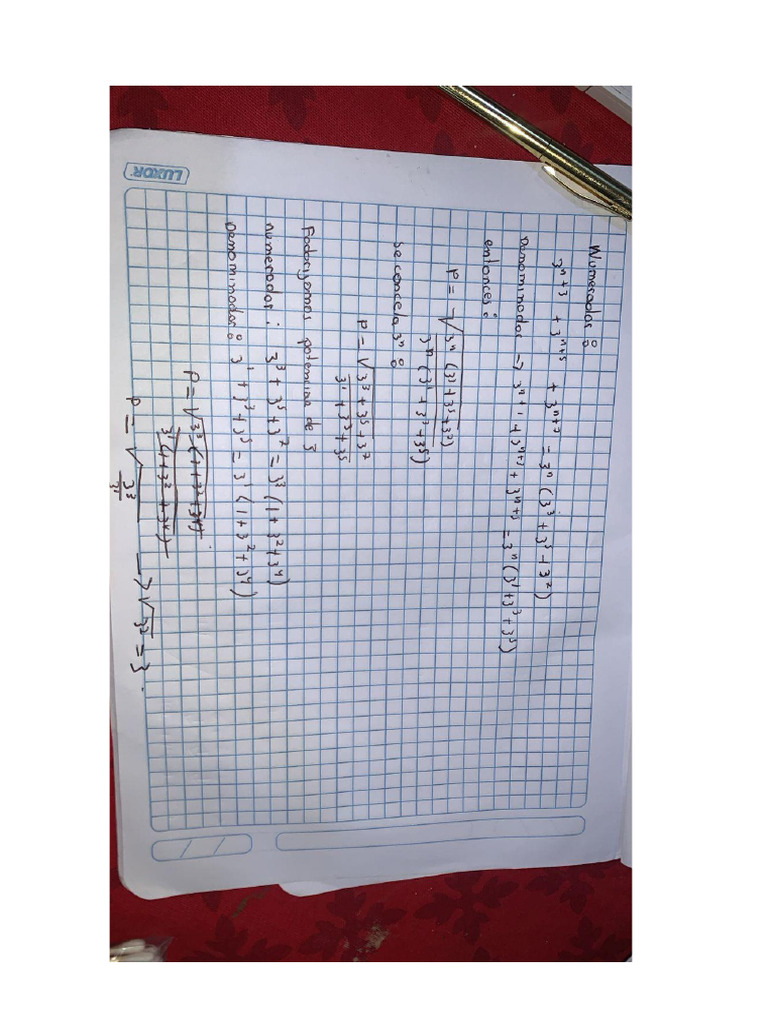 Numerador:
3ⁿ⁺³ + 3ⁿ⁺⁵ + 3ⁿ⁺⁷ = 3ⁿ (3³ + 3⁵ + 3⁷)
Denominador → 3ⁿ⁺¹ + 3ⁿ⁺³ + 3ⁿ⁺⁵ = 3ⁿ (3¹ + 3³ + 3⁵)
entonces:
P = √ 3ⁿ (3³ + 3⁵ + 3⁷)
3ⁿ (3¹ + 3³ + 3⁵)
se cancela 3ⁿ:
P = √ 3³ + 3⁵ + 3⁷
3¹ + 3³ + 3⁵
Fadorijemos potencina de 3
numerador: 3³ + 3⁵ + 3⁷ = 3³ (1 + 3² + 3⁴)
Denominador: 3¹ + 3³ + 3⁵ = 3¹ (1 + 3² + 3⁴)
P = √ 3³ (1 + 3² + 3⁴)
3¹ (1 + 3² + 3⁴)
P = √ 3³ → √3² = 3.
3¹
LUXOR